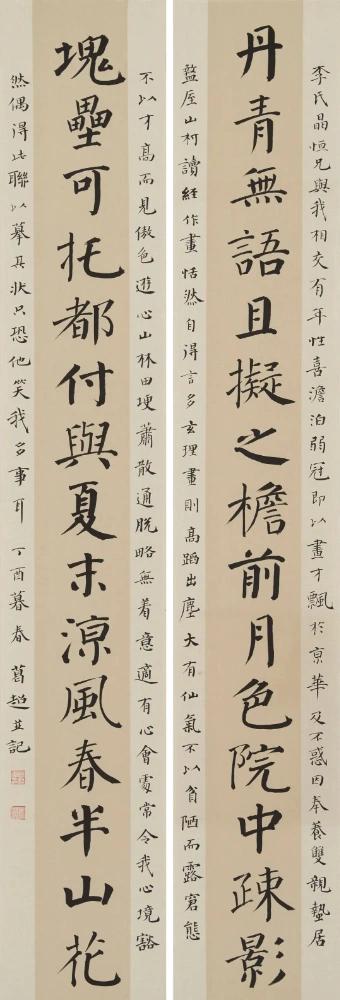 李氏晶恒兄與我相交有年性喜澹泊弱冠即以畫才飄於京華及不惑因奉養雙親蟄居
丹青無語且擬之檐前月色院中疎影
盩厔山柯讀經作畫恬然自得言多玄理畫則高蹈出塵大有仙氣不以貧陋而露窘態
不以才高而見傲色遊心山林田埂蕭散通脱略無着意適有心會處常令我心境豁
塊壘可托都付與夏末涼風春半山花
然偶得此聯以摹其狀只恐他笑我多事耳 丁酉暮春 葛超並記